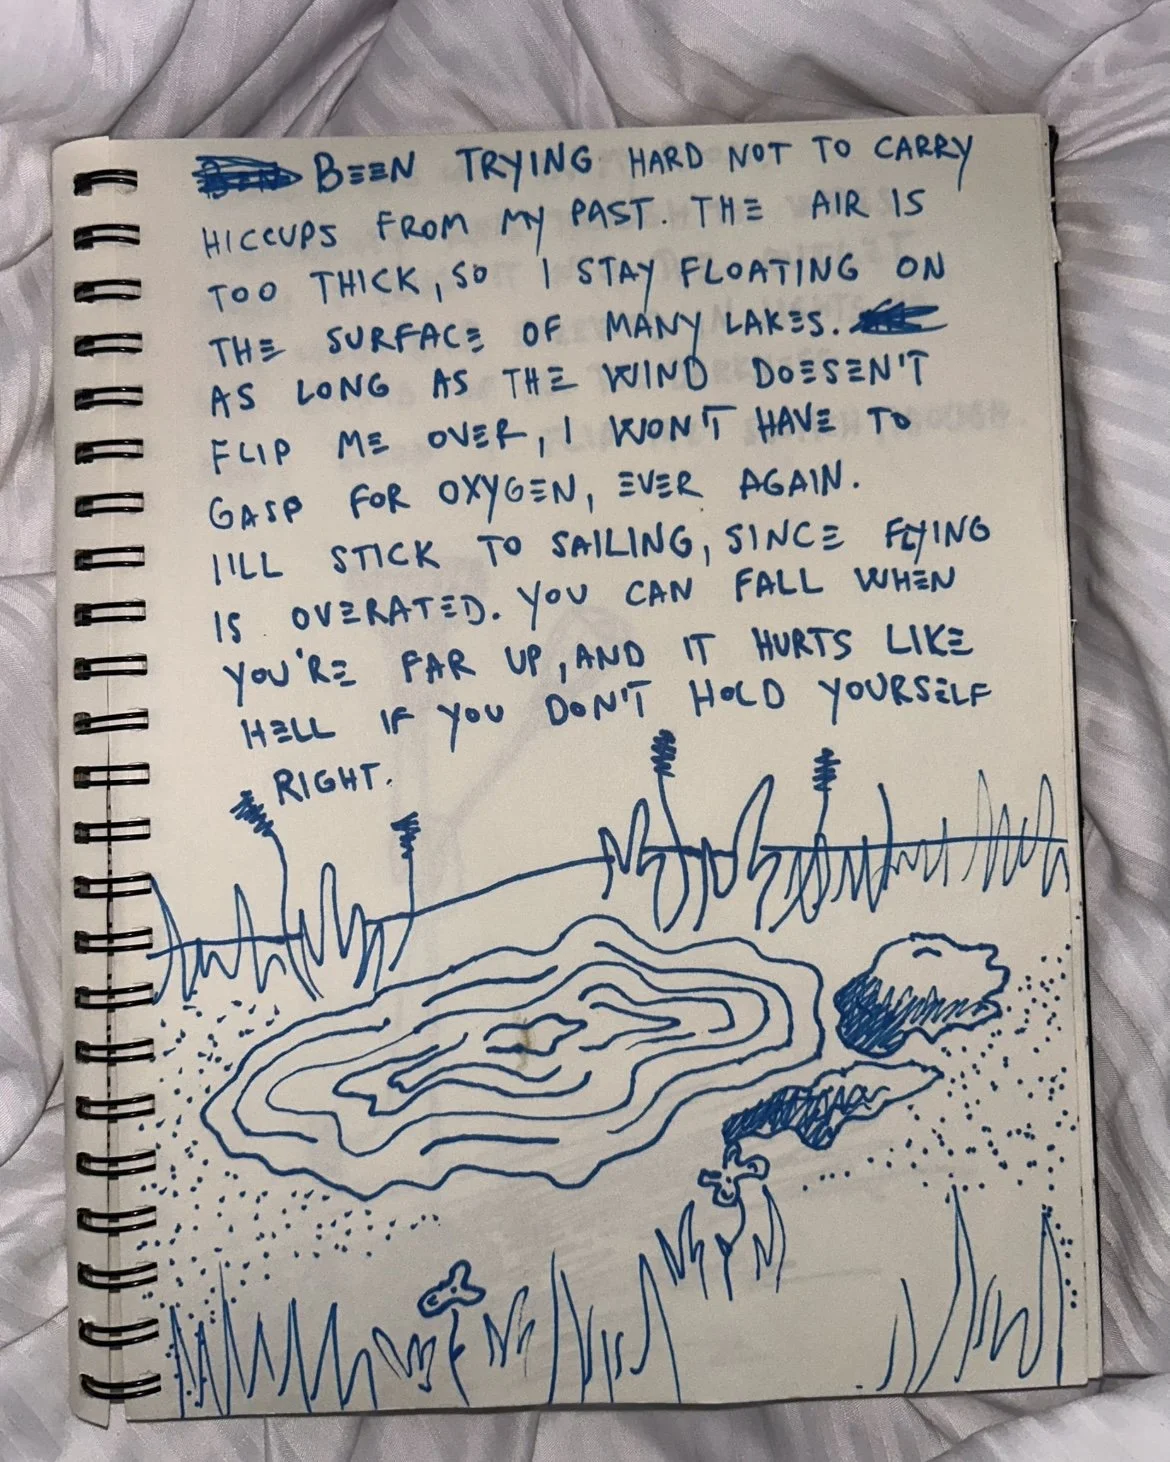 BEEN TRYING HARD NOT TO CARRY
HICCUPS FROM MY PAST. THE AIR IS
TOO THICK, SO I STAY FLOATING ON
THE SURFACE OF MANY LAKES.
AS LONG AS THE WIND DOESEN'T
FLIP ME OVER, I WON'T HAVE TO
GASP FOR OXYGEN, EVER AGAIN.
I'LL STICK TO SAILING, SINCE FLYING
IS OVERATED. YOU CAN FALL WHEN
YOU'RE FAR UP, AND IT HURTS LIKE
HELL IF YOU DON'T HOLD YOURSELF
RIGHT.